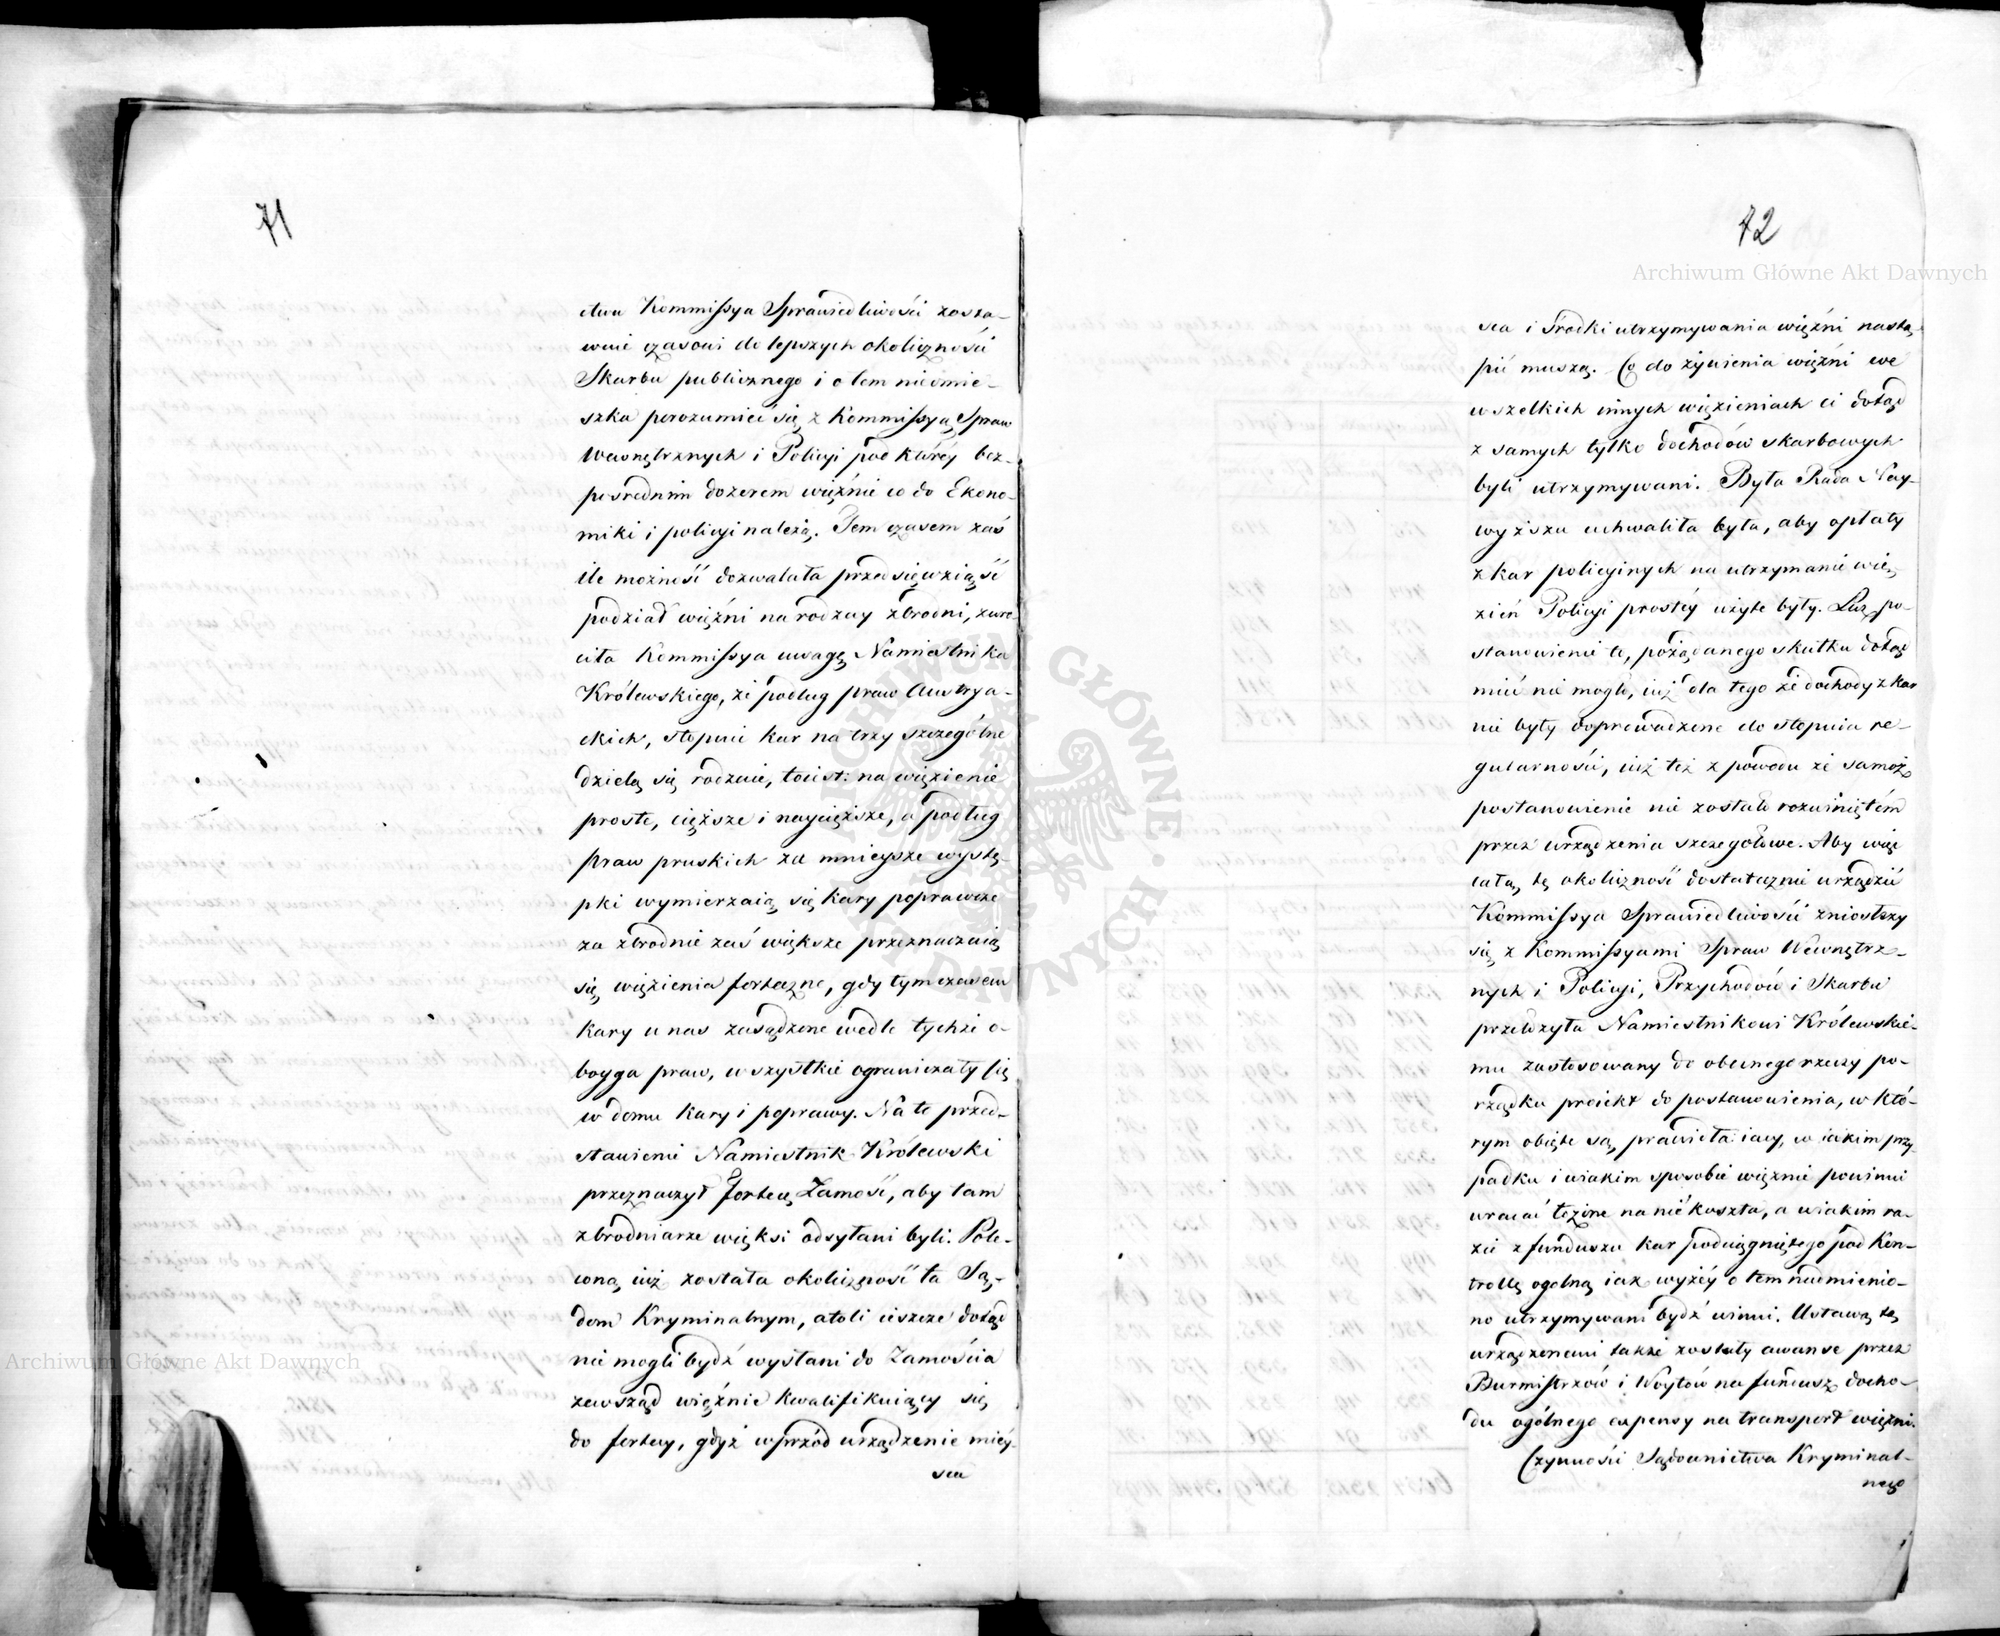 71
ctwu Kommissya Sprawiedliwości zosta-
wuie czasowi do lepszych okoliczności
Skarbu publicznego i o tem nieomie-
szka porozumieć się z Kommissyą Spraw
Wewnętrznych i Policyi pod któréy bez-
pośrednim dozorem więźnie co do Ekono-
miki i policyi należą. Tem czasem zaś
ile możność dozwalała przedsięwziąść
podział więźni na rodzay zbrodni, zwró-
ciła Kommissya uwagę Namiestnika
Królewskiego, że podług praw Austrya-
ckich, stopnie kar na trzy szczególne
dzielą się rodzaie, toiest: na więzienie
proste, cięższe i naycięższe, a podług
praw pruskich za mnieysze wystę-
pki wymierzaią się kary poprawcze
za zbrodnie zaś większe przeznaczaią
się więzienia forteczne, gdy tymczasem
kary u nas zasądzone wedle tychże o-
boyga praw, wszystkie ograniczały się
w domu kary i poprawy. Na to przed-
stawienie Namiestnik Królewski
przeznaczył fortecę Zamość, aby tam
zbrodniarze więksi odsyłani byli. Pole-
coną iuż została okoliczność ta Są-
dom Kryminalnym, atoli ieszcze dotąd
nie mogli bydź wysłani do Zamościa
zewsząd więźnie kwalifikuiący się
do fortecy, gdyż wprzód urządzenie miey-
sca
72
sca i środki utrzymywania więźni nastą-
pić muszą. Co do żywienia więźni we
wszelkich innych więzieniach ci dotąd
z samych tylko dochodów skarbowych
byli utrzymywani. Była Rada Nay-
wyższa uchwaliła była, aby opłaty
z kar policyinych na utrzymanie wię-
zień Policyi prostéy użyte były. Lecz po-
stanowienie to, pożądanego skutku dotąd
mieć nie mogło, iuż dla tego że dochody z kar
nie były doprowadzone do stopnia re-
gularności, iuż też z powodu że samoż
postanowienie nie zostało rozwiniętém
przez urządzenia szczegółowe. Aby więc
całą tę okoliczność dostatecznie urządzić
Kommissya Sprawiedliwości zniosłszy
się z Kommissyami Spraw Wewnętrz-
nych i Policyi, Przychodów i Skarbu
przełożyła Namiestnikowi Królewskie-
mu zastosowany do obecnego rzeczy po-
rządku proiekt do postanowienia, w któ-
rym obięte są prawidła: iacy, w iakim przy-
padku i w iakim sposobie więźnie powinni
wracać łożone na nich koszta, a w iakim ra-
zie z funduszu kar podciągniętego pod Kon-
trollę ogólną iak wyżéy o tem nadmienio-
no utrzymywani bydź winni. Ustawą tą
urządzonemi także zostały awanse przez
Burmistrzów i Woytów na fundusz docho-
du ogólnego expensy na transport więźni.
Czynności Sądownictwa Kryminal-
nego
Archiwum Główne Akt Dawnych
Archiwum Główne Akt Dawnych